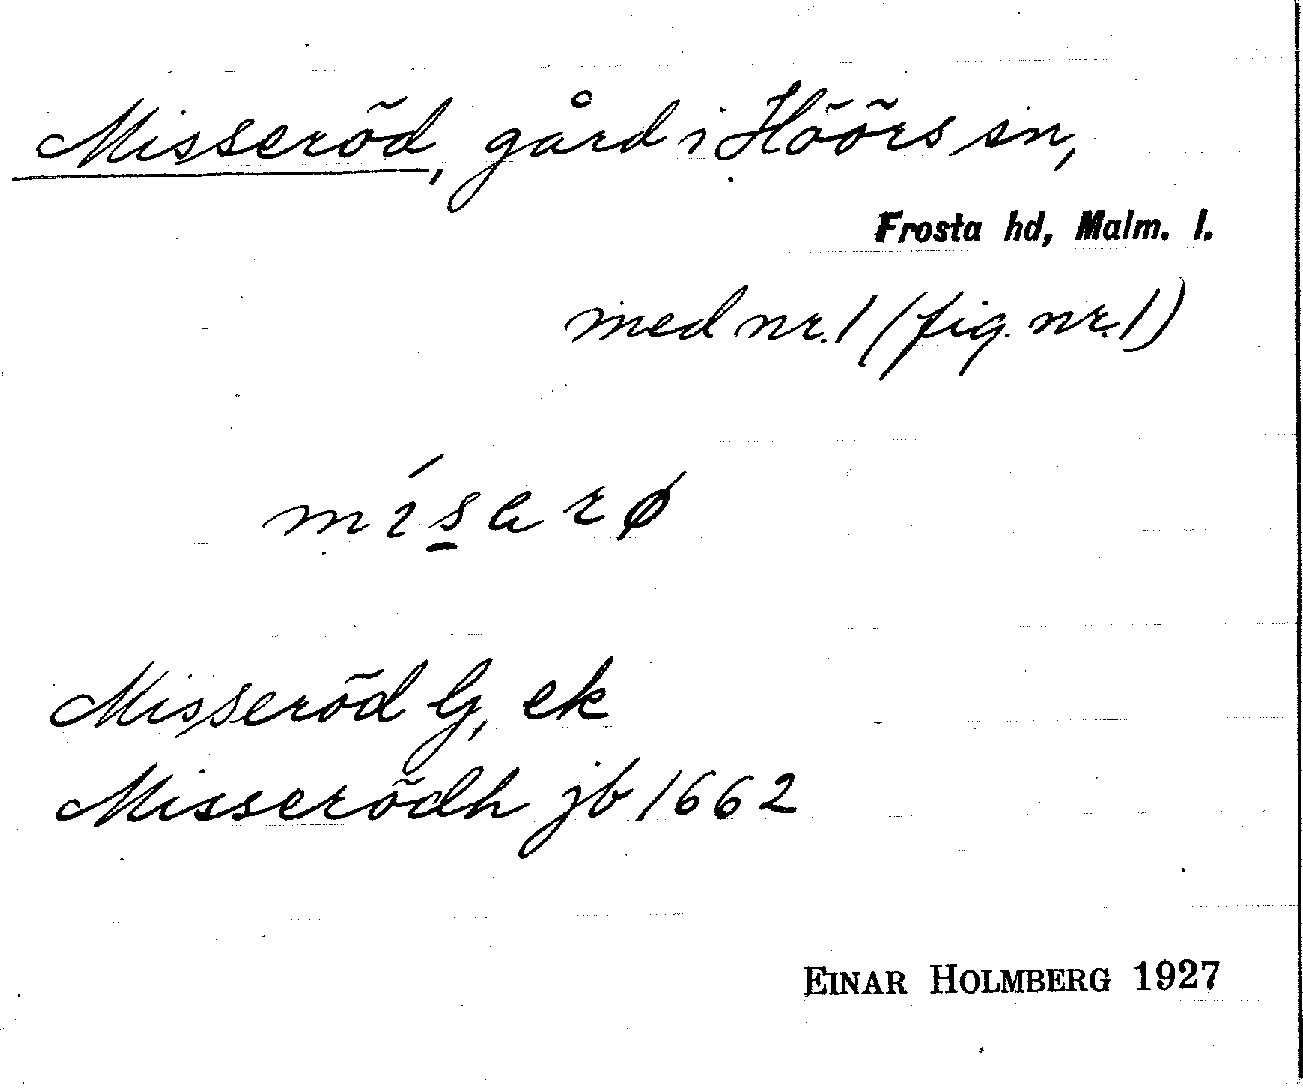 Misseröd, gård i Höörs sn,
Frosta hd, Malm. l.
med nr. 1 (fig. nr. 1)
mísarø
Misseröd G, ek
Misserödh jb 1662
EINAR HOLMBERG 1927